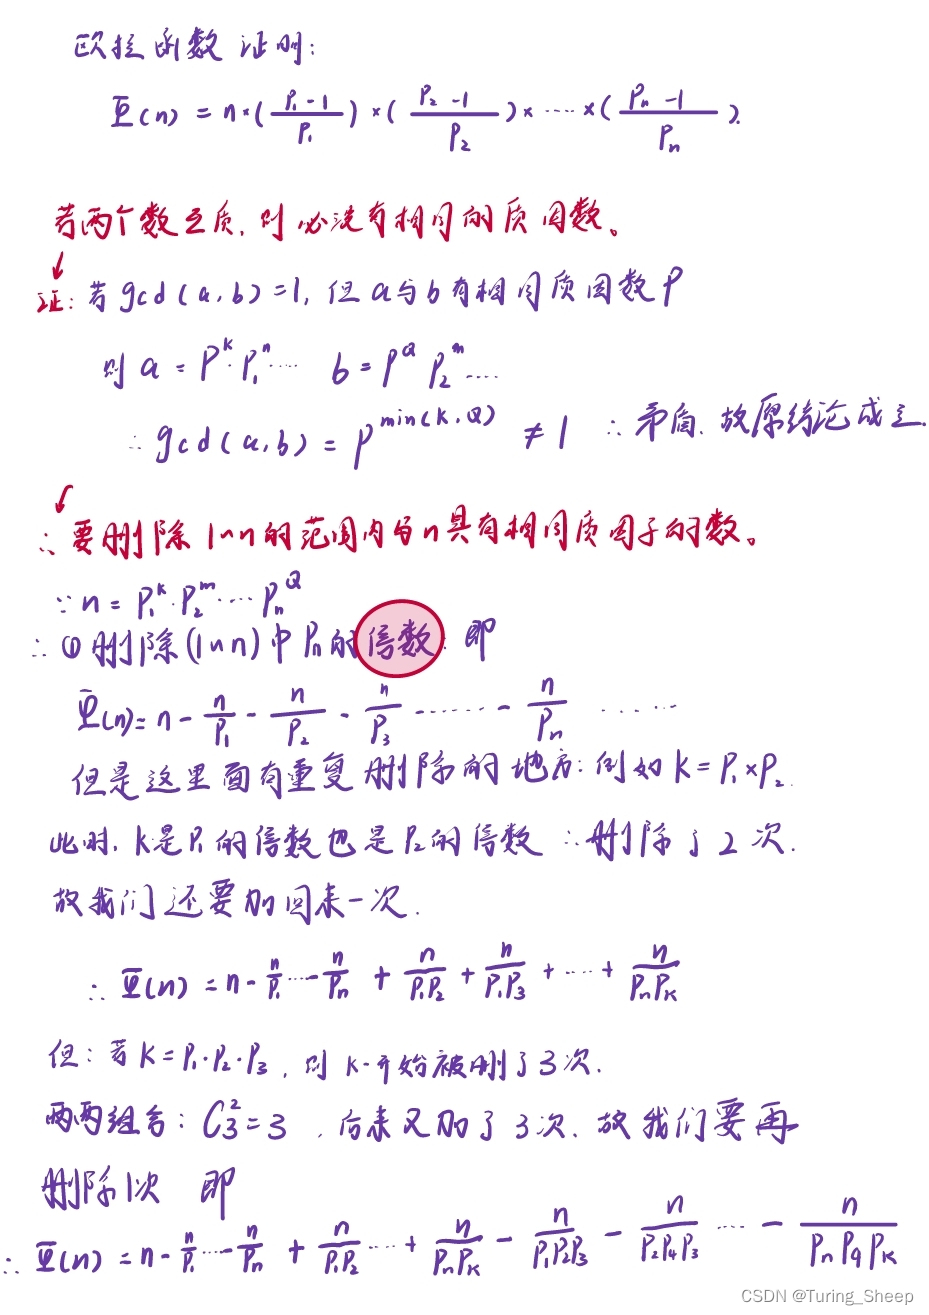 欧拉函数证明:
Φ(n) = n×(P₁-1/P₁)×(P₂-1/P₂)×……×(Pₙ-1/Pₙ).
若两个数互质,则必没有相同的质因数。
证:若gcd(a,b)=1,但a与b有相同质因数P
则 a = P^k·P₁^n…… b = P^Q P₂^m……
∴ gcd(a,b) = P^min(k,Q) ≠ 1 ∴矛盾,故原结论成立.
∴要删除1~n的范围内与n具有相同质因子的数。
∵n = P₁^k·P₂^m……Pₙ^Q
∴①删除(1~n)中Pₙ的倍数.即
Φ(n)= n - n/P₁ - n/P₂ - n/P₃ …… - n/Pₙ ……
但是这里面有重复删除的地方:例如 k = P₁×P₂.
此时,k是P₁的倍数也是P₂的倍数 ∴删除了2次.
故我们还要加回来一次.
∴ Φ(n) = n - n/P₁ … - n/Pₙ + n/P₁P₂ + n/P₁P₃ + … + n/PₙPₖ
但:若K=P₁·P₂·P₃,则k一开始被删了3次.
两两组合:C₃²=3,后来又加了3次.故我们要再
删除1次 即
∴ Φ(n) = n - n/P₁ … - n/Pₙ + n/P₁P₂ … + n/PₙPₖ - n/P₁P₂P₃ - n/P₂P₄P₃ … - n/PₙPqPₖ
CSDN @Turing_Sheep